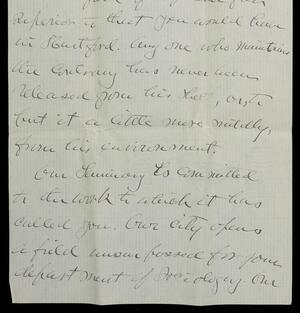 superior to that you would have
in Hartford. Any one who maintains
the contrary has never been
released from his        , or to
put it a little more mildly,
from his environment.
Our Seminary is committed
to the work to which it has
called you. Our city opens
a field unsurpassed for your
department of Sociology. Our